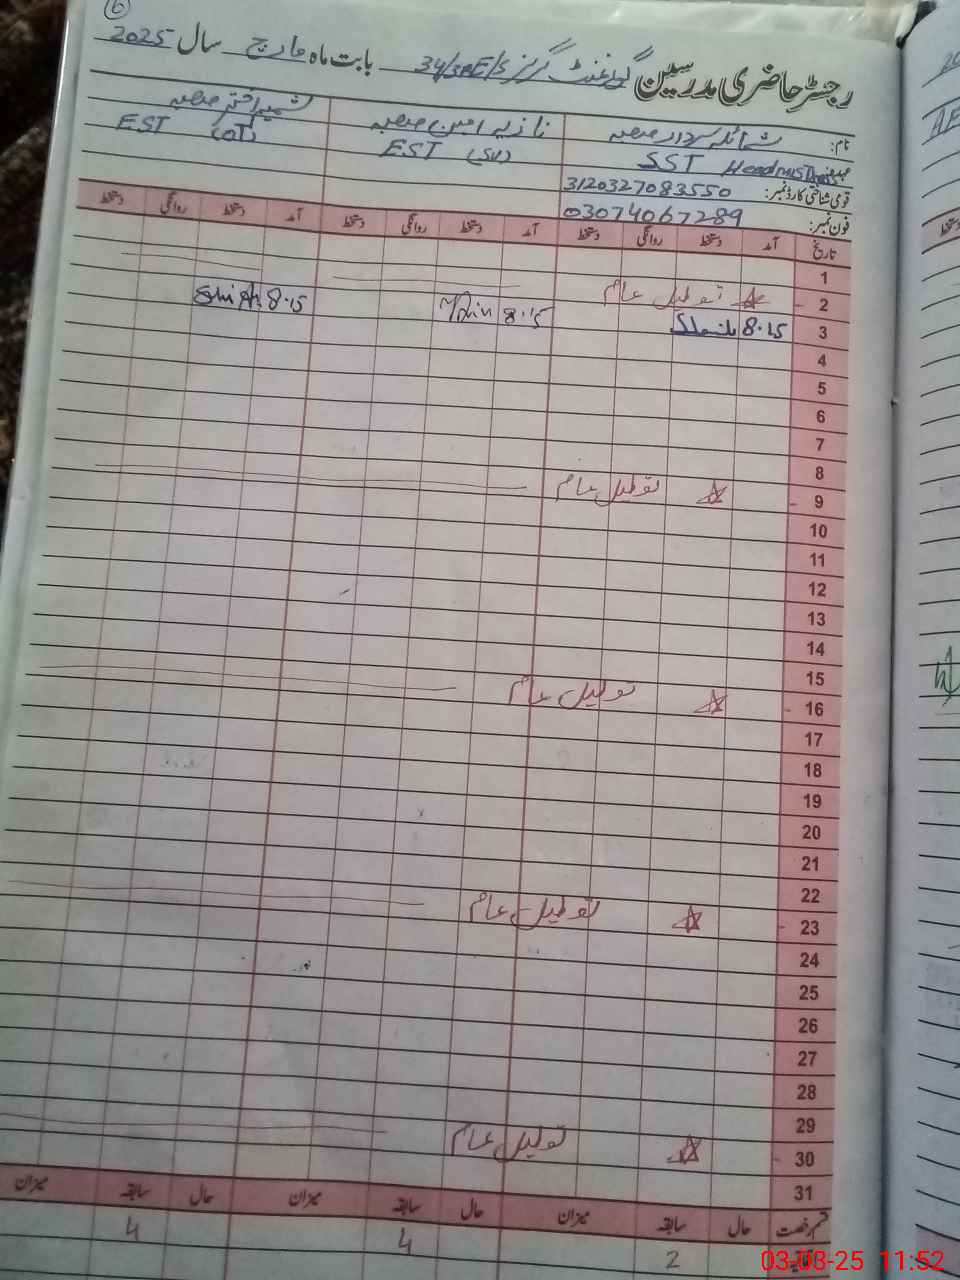 6
رجسٹر حاضری مدرسین گورنمنٹ گرلز 34/3RE/S بابت ماہ مارچ سال 2025
نام: شمائلہ سردار صاحبہ نازیہ امین صاحبہ شمیم اختر صاحبہ
عہدہ: SST Headmistress EST (SV) EST (OT)
قومی شناختی کارڈ نمبر: 3120327083550
فون نمبر: 03074067289
تاریخ آمد دستخط روانگی دستخط آمد دستخط روانگی دستخط آمد دستخط روانگی دستخط
1
2 تعطیل عام
3 8.15 8.15 8.15
4
5
6
7
8
9 تعطیل عام
10
11
12
13
14
15
16 تعطیل عام
17
18
19
20
21
22
23 تعطیل عام
24
25
26
27
28
29
30 تعطیل عام
31
قسم رخصت حال سابقہ میزان حال سابقہ میزان حال سابقہ میزان
2 4 4
03-03-25 11:52